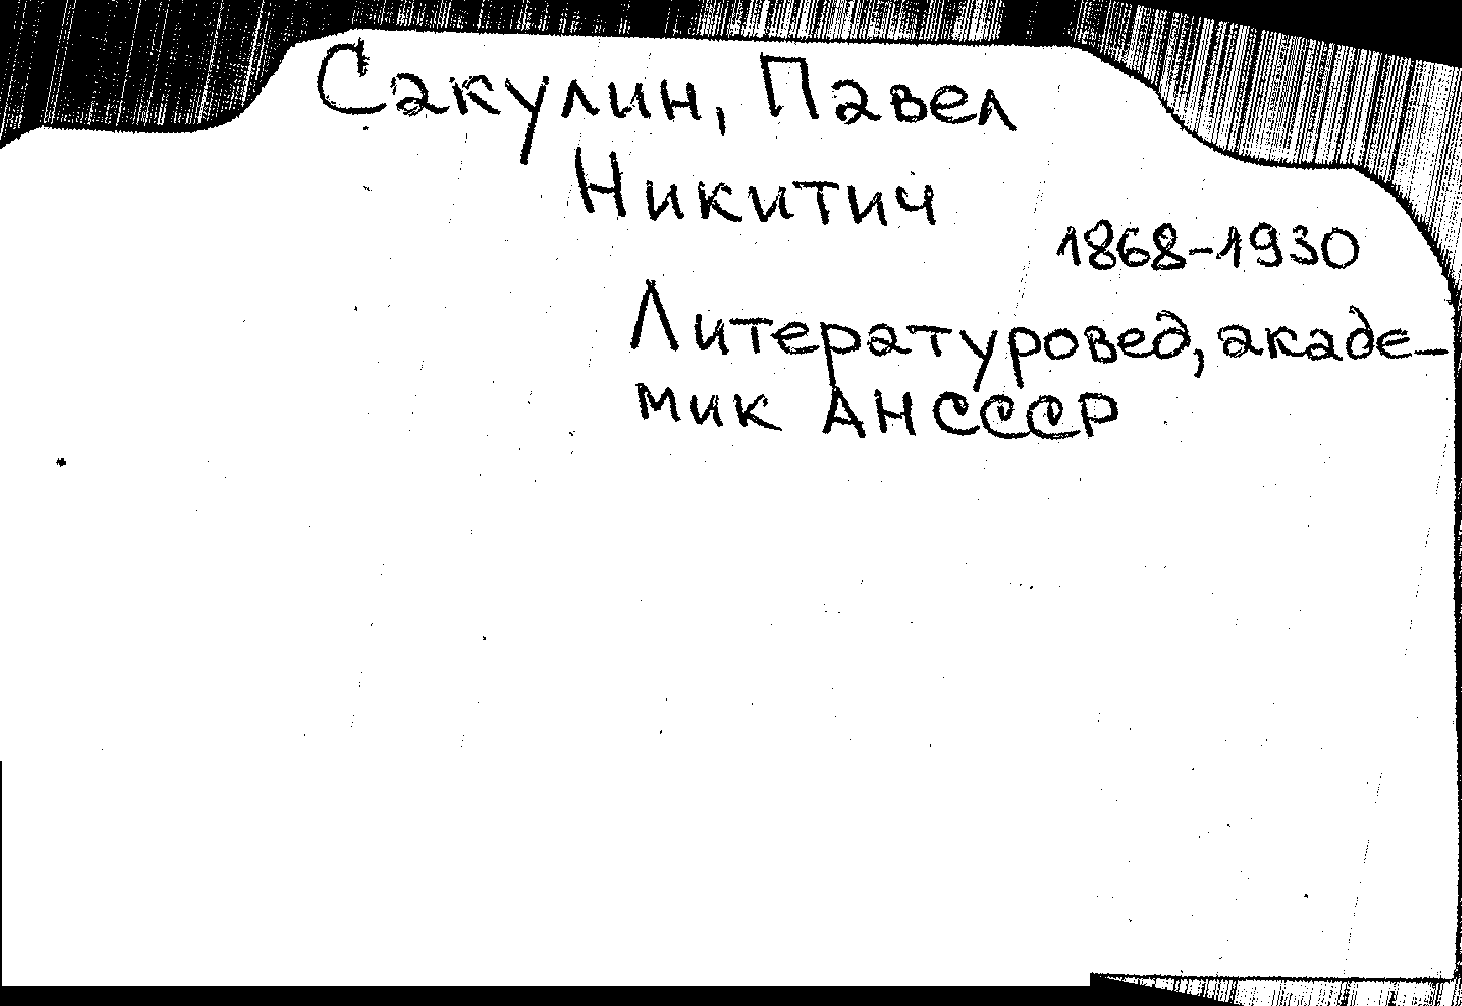 Сакулин, Павел
Никитич
1868-1930
Литературовед, акаде-
мик АН СССР